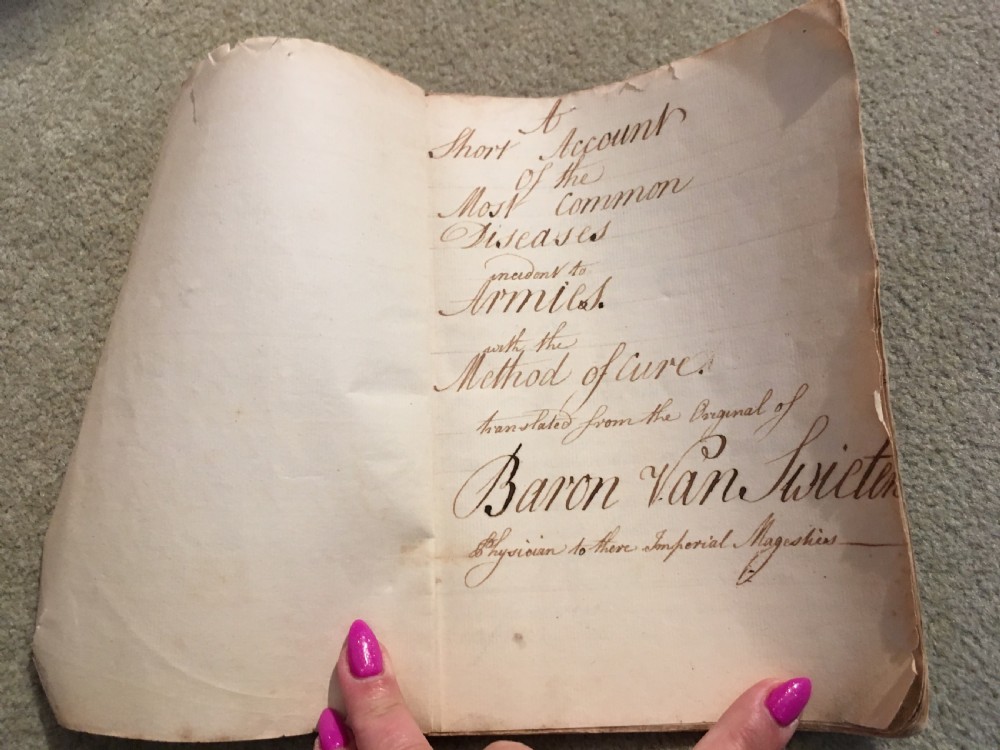 A
Short Account
Of the
Most Common
Diseases
incident to
Armies.
with the
Method of Cure.
translated from the Original of
Baron Van Swieten
Physician to there Imperial Magesties